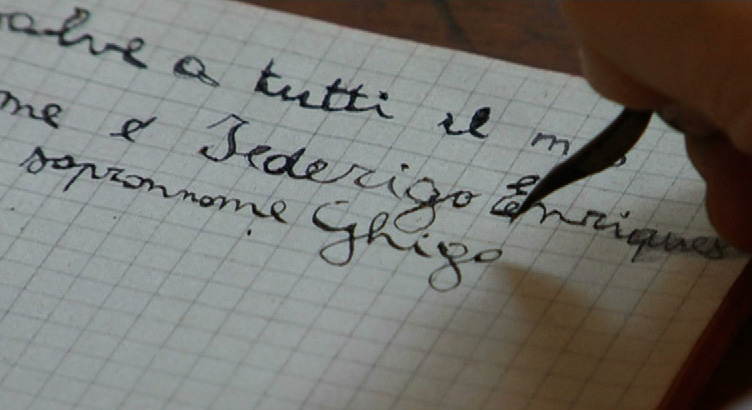 salve a tutti il m
me e Federigo Enriques
soprannome Ghigo